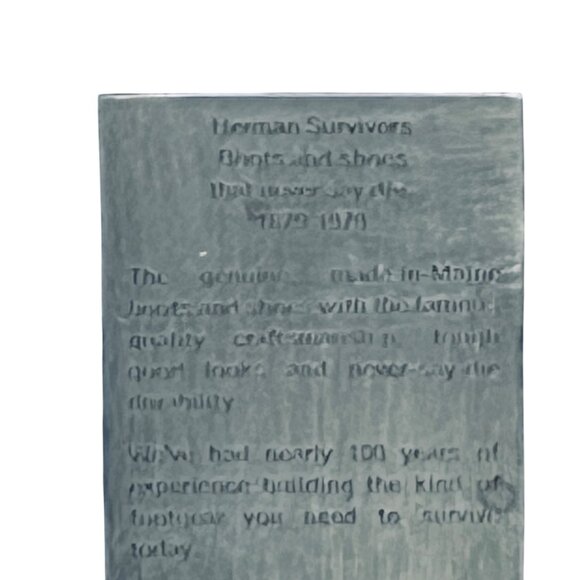 Herman Survivors
Boots and shoes
that never say die.
1879-1979
The genuine made-in-Maine
boots and shoes with the famous
quality craftsmanship, tough
good looks and never-say-die
durability
We've had nearly 100 years of
experience building the kind of
footgear you need to survive
today.